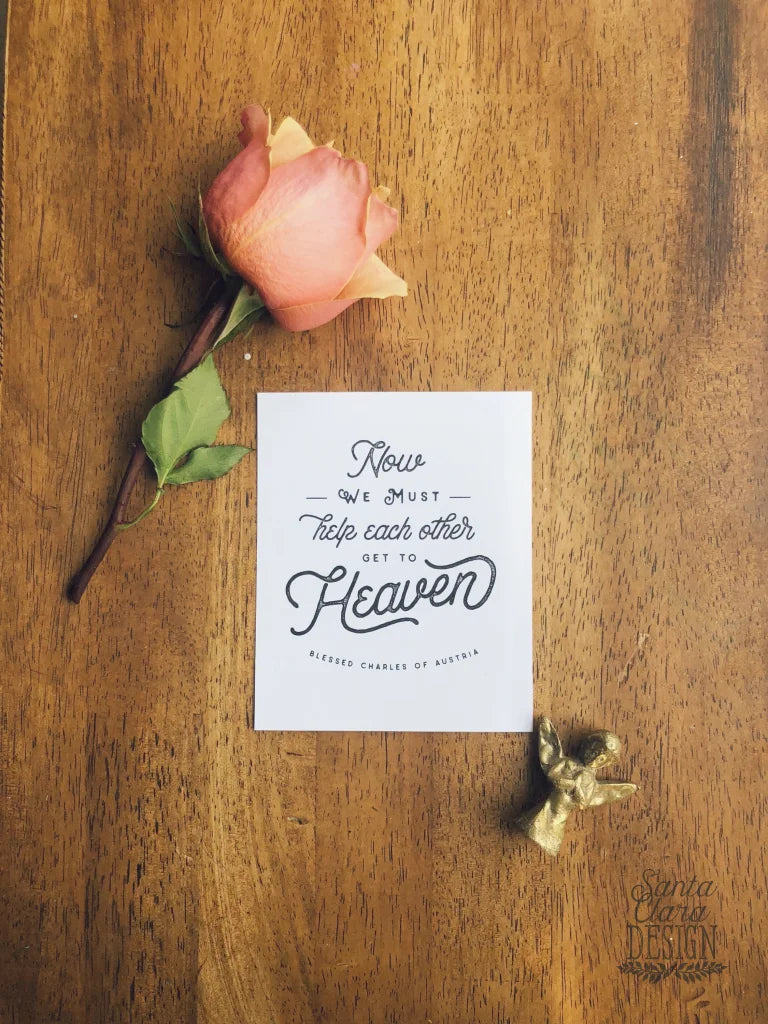 Now
WE MUST
help each other
GET TO
Heaven
BLESSED CHARLES OF AUSTRIA
Santa
Clara
DESIGN